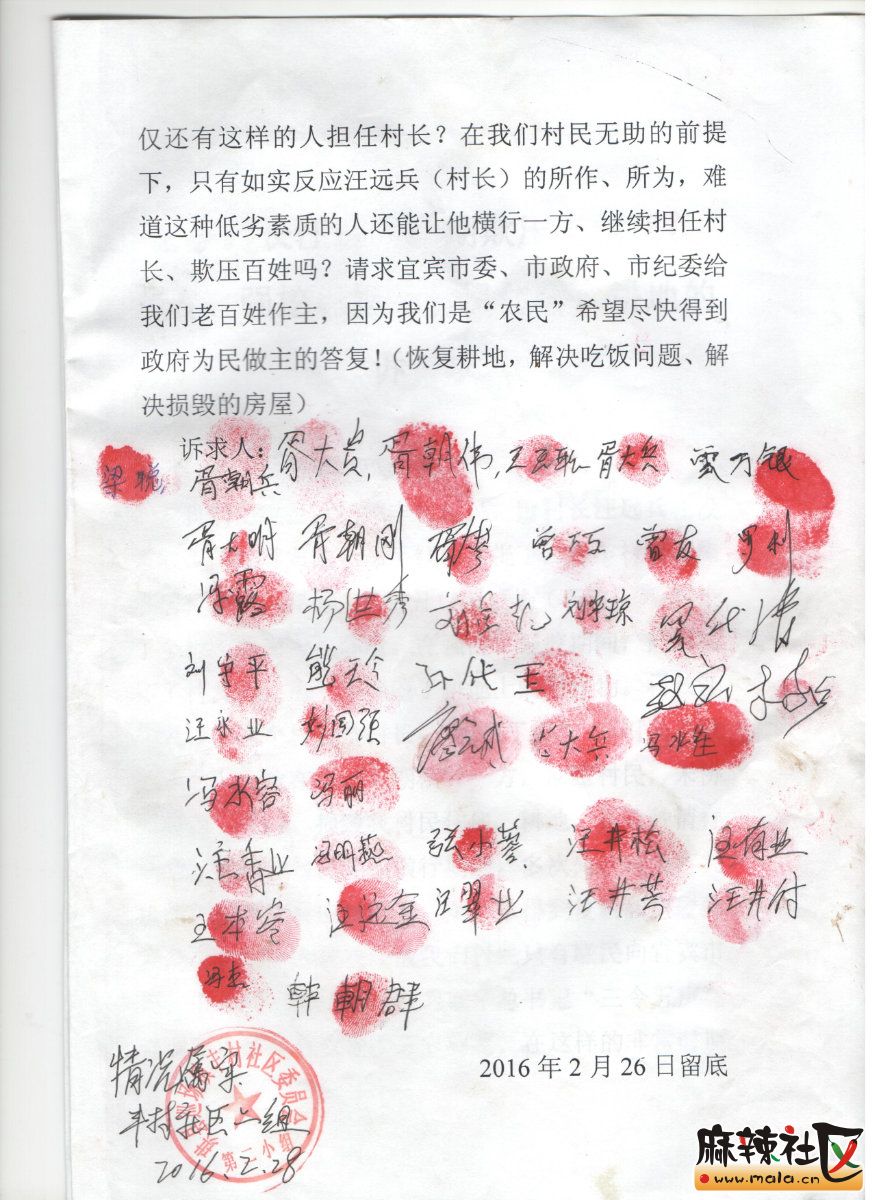 仅还有这样的人担任村长？在我们村民无助的前提
下，只有如实反应汪远兵（村长）的所作、所为，难
道这种低劣素质的人还能让他横行一方、继续担任村
长、欺压百姓吗？请求宜宾市委、市政府、市纪委给
我们老百姓作主，因为我们是“农民”希望尽快得到
政府为民做主的答复！（恢复耕地，解决吃饭问题、解
决损毁的房屋）
诉求人：胥大贵，胥朝伟，胥大兵
胥朝兵
胥大明 胥朝刚 曾友 罗利
冯霞 杨世秀 刘宇琼
刘宇平 熊天令 孙代玉
汪永业 刘国强 大兵
冯永容 冯丽
冯明燕 张小蓉 汪井松 汪有业
王本容 汪远金 汪翠业 汪井芸 汪井付
韩朝群
2016年2月26日留底
村社区委员会
第二小组
情况属实
丰村社区二组
2016.2.28
麻辣社区
www.mala.cn